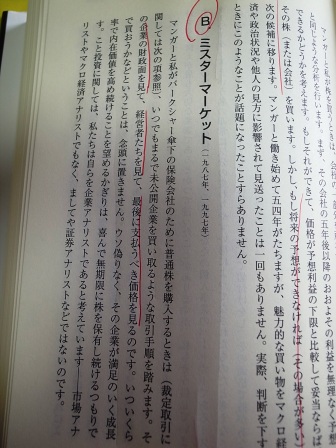 と同じような分析を行います。まず、その会社の五年後以降のおおよその利益を無理な
できるかどうかを考えます。もしそれができて、価格が予想利益の下限と比較して妥当なら
その株（または会社）を買います。しかし、もし将来の予想ができなければ（その場合が多い
次の候補に移ります。マンガーと働き始めて五四年がたちますが、魅力的な買い物をマクロ経
済や政治状況や他人の見方に影響されて見送ったことは一回もありません。実際、判断を下
ときにこのようなことが話題になったことすらありません。
B ミスターマーケット（一九八七年、一九九七年）
マンガーと私がバークシャー傘下の保険会社のために普通株を購入するときは（裁定取引に
関しては次の項参照）、いつでもまるで未公開企業を買い取るような取引手順を踏みます。そ
の企業の財政面を見て、経営者たちを見て、最後に支払うべき価格を見るのです。いついくら
で買おうかなどということは、念頭に置きません。ウソ偽りなく、その企業が満足のいく成長
率で内在価値を高め続けることを望めるかぎりは、喜んで無期限に株を保有し続けるつもりで
す。こと投資に関しては、私たちは自らを企業アナリストであると考えています――市場アナ
リストやマクロ経済アナリストでもなく、ましてや証券アナリストなどではないのです。